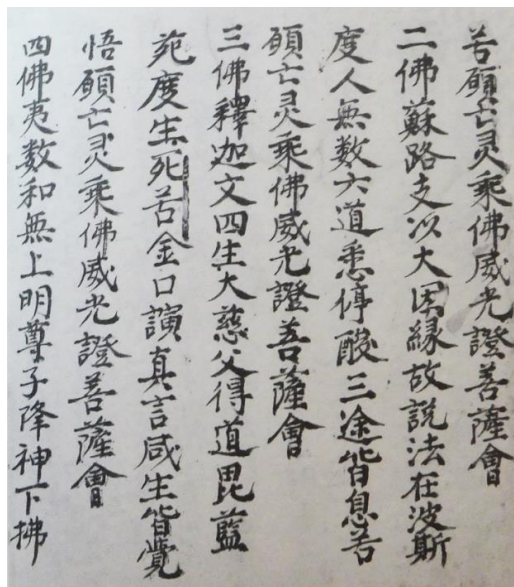 苦願亡灵乘佛威光證菩薩會
二佛蘇路支以大因緣故說法在波斯
度人無数六道悉停酸三途皆息苦
願亡灵乘佛威光證菩薩會
三佛釋迦文四生大慈父得道毘藍
苑度生死苦金口演真言咸生皆覺
悟願亡灵乘佛威光證菩薩會
四佛夷数和無上明尊子降神下拂